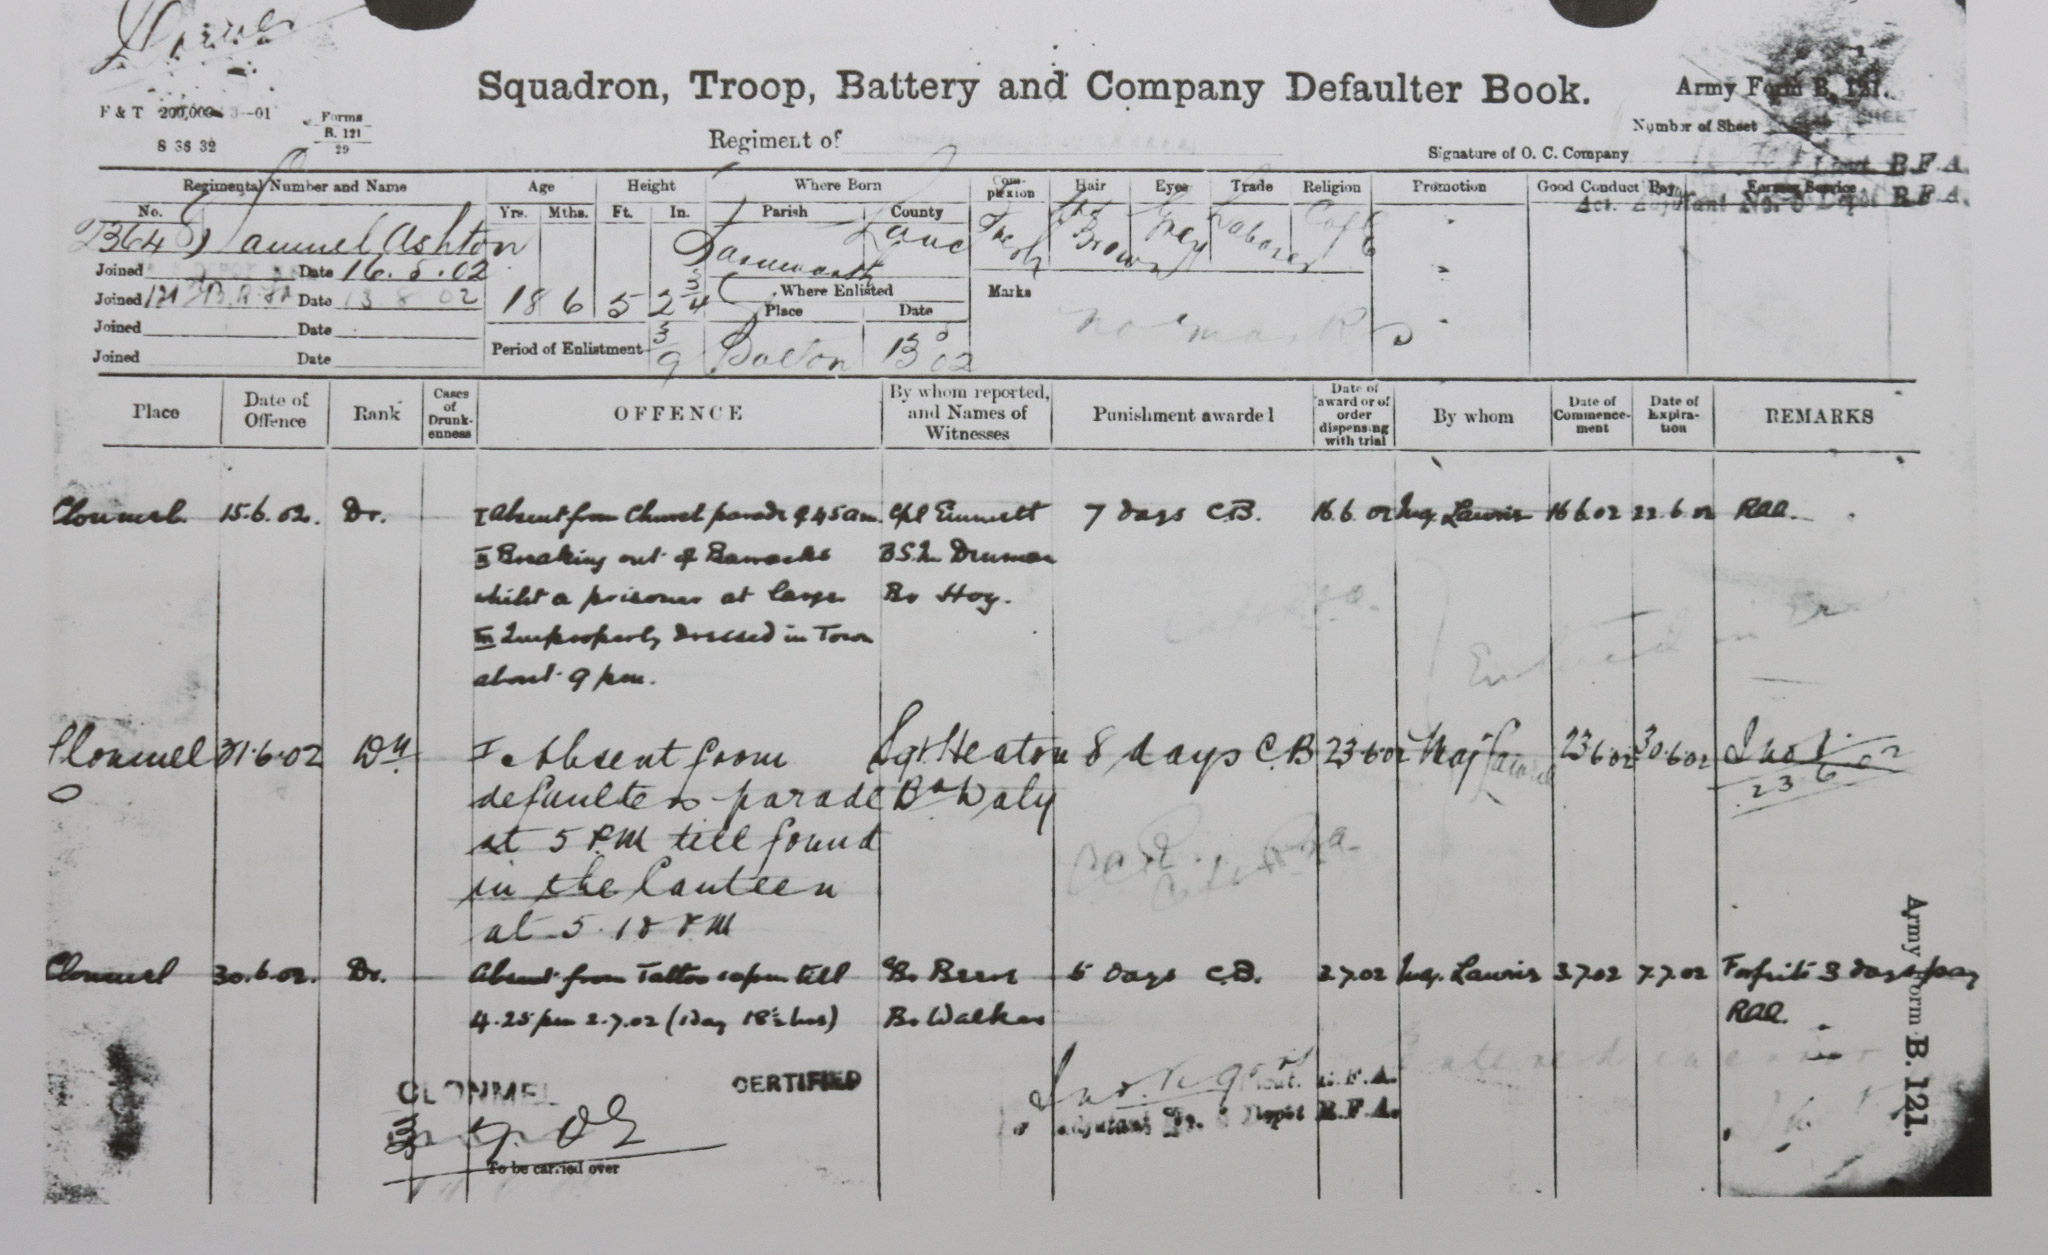 Squadron, Troop, Battery and Company Defaulter Book.
Army Form B. 121.
F & T 200,000 3—01
Forms
B. 121
29
8 36 32
Regiment of
Number of Sheet
Signature of O. C. Company
Lieut R.F.A.
Act. Adjutant No. 3 Depot R.F.A.
Regimental Number and Name Age Height Where Born Com-plexion Hair Eyes Trade Religion Promotion Good Conduct Pay Former Service
No. Yrs. Mths. Ft. In. Parish County
2364 Samuel Ashton Farnworth Lanc Fresh Brown Grey Labourer C of E
Joined Date 16.5.02
Joined Date 13 8 02 18 6 5 2 3/4 Where Enlisted Marks
Place Date no marks
Joined Date
Joined Date Period of Enlistment 3/9 Bolton 13 5 02
Place Date of Offence Rank Cases of Drunk-enness OFFENCE By whom reported, and Names of Witnesses Punishment awarded Date of award or of order dispensing with trial By whom Date of Commence-ment Date of Expira-tion REMARKS
Clonmel 15.6.02. Dr. I Absent from Church parade 9.45 am. Cpl Emmett 7 days C.B. 16.6.02 Maj. Lawrie 16.6.02 22.6.02
II Breaking out of Barracks B.S.M
whilst a prisoner at large Br Hoy.
III Improperly dressed in Town
about 9 pm.
Clonmel 21.6.02 Dr I Absent from Sgt. Heaton 8 days C.B 23.6.02 Maj Lawrie 23.6.02 30.6.02
defaulters parade Br Daly 23 6 02
at 5 P.M till found
in the Canteen
at 5.18 P M
Clonmel 30.6.02. Dr. Absent from Tattoo 10 pm till Br 5 days C.B. 2.7.02 Maj. Lawrie 3.7.02 7.7.02 Forfeits 3 days pay
4.25 pm 2.7.02 (1 day 18½ hrs) Br Walker
CLONMEL CERTIFIED
Lieut. R.F.A.
Adjutant No. 3 Depot R.F.A.
To be carried over
Army Form B. 121.